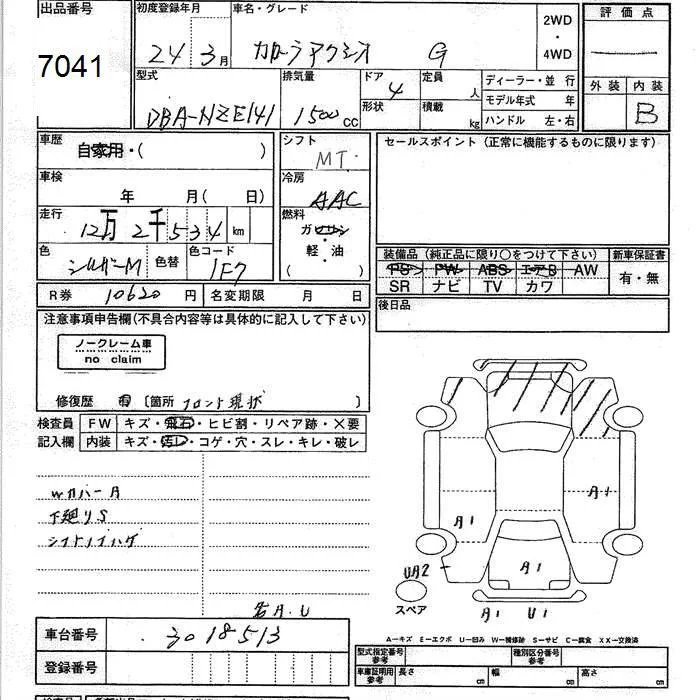 出品番号
7041
初度登録年月
24 3月
車名・グレード
カローラアクシオ G
2WD
・
4WD
評価点
外装 内装
B
型式
DBA-NZE141
排気量
1500cc
ドア
4
形状
定員
人
積載
kg
ディーラー・並 行
モデル年式 年
ハンドル 左・右
車歴
自家用・( )
車検
年 月( 日)
走行
12万2千534 km
色
シルバーM
色替
色コード
1F7
シフト
MT
冷房
AAC
燃料
ガソリン
・
軽・油
( )
セールスポイント(正常に機能するものに限ります)
装備品(純正品に限り○をつけて下さい)
PS PW ABS エアB AW
SR ナビ TV カワ
新車保証書
有・無
R券 10620円
名変期限 月 日
後日品
注意事項申告欄(不具合内容等は具体的に記入して下さい)
ノークレーム車
no claim
修復歴 有 〔箇所 フロント現状 〕
検査員
記入欄
FW キズ・飛石・ヒビ割・リペア跡・×要
内装 キズ・汚レ・コゲ・穴・スレ・キレ・破レ
Wカバー A
下廻りS
シフトノブハゲ
若A.U
A1
A1
A1
UA2
A1 U1
スペア
A—キズ E—エクボ U—凹み W—補修跡 S—サビ C—腐食 XX—交換済
車台番号
3018513
登録番号
型式指定番号
参考
種別区分番号
参考
車庫証明用
参考
長さ cm
幅 cm
高さ cm